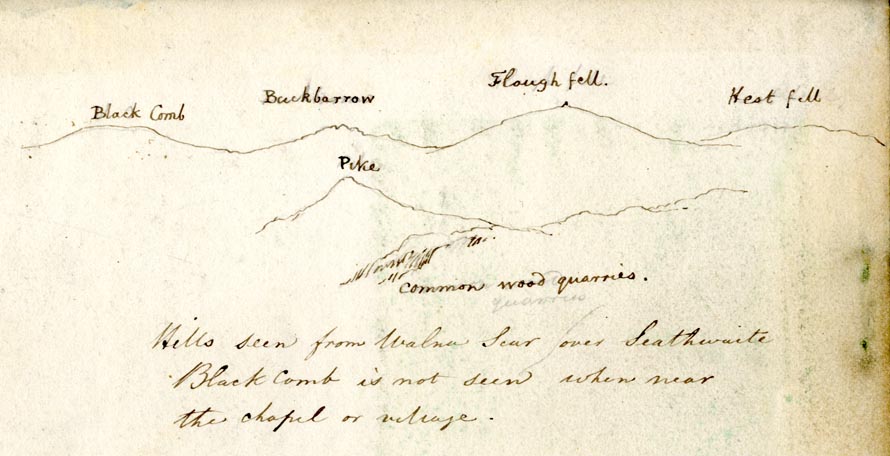 Black Comb
Buckbarrow
Flough fell.
Hest fell
Pike
Common wood quarries.
quarries
Hills seen from Walna Scar over Seathwaite
Black Comb is not seen when near
the chapel or village.